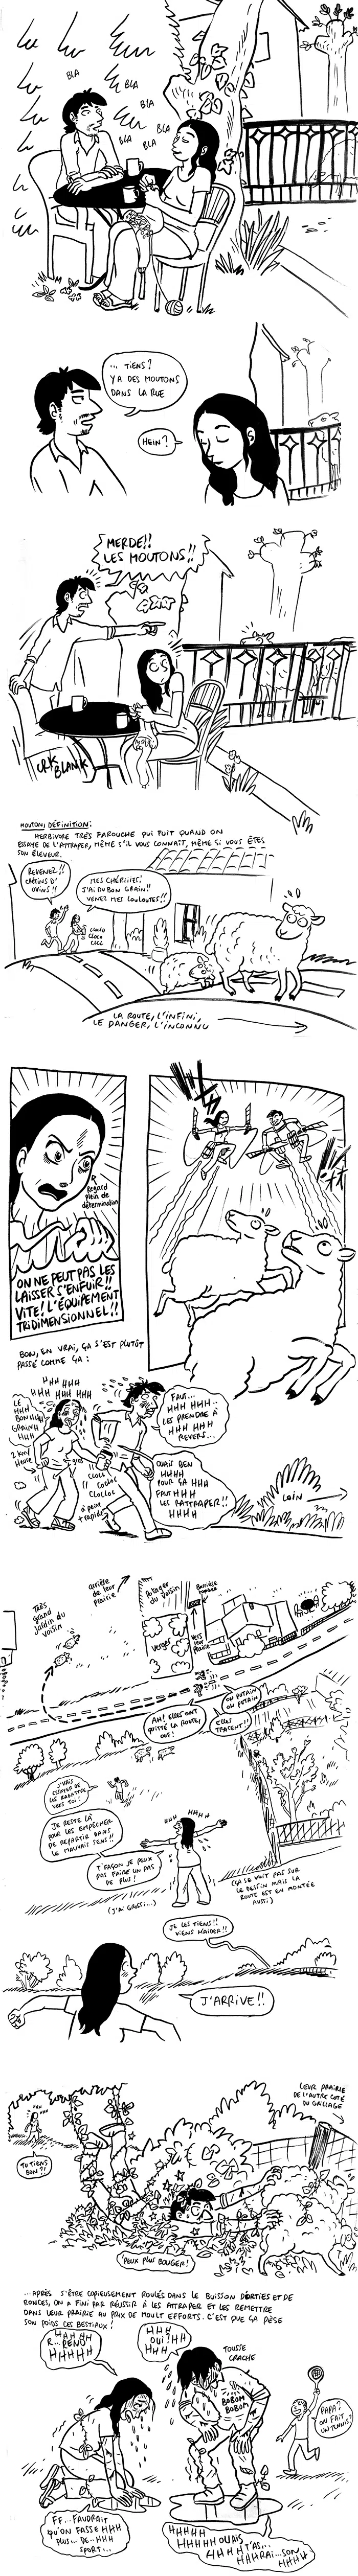 BLA
BLA
BLA
BLA
BLA
BLA
BLA
... TIENS?
Y'A DES MOUTONS
DANS LA RUE
HEIN?
MERDE!!
LES MOUTONS!!
BLANK
MOUTON, DÉFINITION:
HERBIVORE TRÈS FAROUCHE QUI FUIT QUAND ON
ESSAYE DE L'ATTRAPER, MÊME S'IL VOUS CONNAIT, MÊME SI VOUS ÊTES
SON ÉLEVEUR.
REVENEZ!!
CRÉTINS D'
OVINS!!
MES CHÉRIIIES!
J'AI DU BON GRAIN!!
VENEZ MES LOULOUTES!!
CLOCLO
CLOCLO
CLOC
LA ROUTE, L'INFINI,
LE DANGER, L'INCONNU
Regard
plein de
détermination
ON NE PEUT PAS LES
LAISSER S'ENFUIR!!
VITE! L'ÉQUIPEMENT
TRIDIMENSIONNEL!!
BON, EN VRAI, ÇA S'EST PLUTÔT
PASSÉ COMME ÇA:
HHH HHH
HHH HHH HHH
LE
HHH
BON HHH
GRAIN H
HUH
2 km/
Heure
CLOCL
CLOCLOC
CLOCLOC
à peine
+ rapide
FAUT...
HHH HHH..
LES PRENDRE À
HHH HHH
REVERS...
OUAIS BEN
HHHH
POUR ÇA HHH
FAUT HHH
LES RATTRAPER!!
HHHH
LOIN
Très
grand
jardin du
voisin
arrière
de leur
prairie
Potager
du voisin
Verger
Barrière
Vers
leur
prairie
LOIN
AH! ELLES ONT
QUITTÉ LA ROUTE,
OUF!
OH PUTAIN
OH PUTAIN
ELLES
TRACENT!!
J'VAIS
ESSAYER DE
LES RABATTRE
VERS TOI!
JE RESTE LÀ
POUR LES EMPÊCHER
DE REPARTIR DANS
LE MAUVAIS SENS!!
HHH HHHH
T'FAÇON JE PEUX
PAS FAIRE UN PAS
DE PLUS!
(J'AI GROSSI...)
(ÇA SE VOIT PAS SUR
LE DESSIN MAIS LA
ROUTE EST EN MONTÉE
AUSSI)
JE LES TIENS!!
VIENS M'AIDER!!
J'ARRIVE!!
LEUR PRAIRIE
DE L'AUTRE CÔTÉ
DU GRILLAGE
TU TIENS
BON?!
'PEUX PLUS BOUGER!
...APRÈS S'ÊTRE COPIEUSEMENT ROULÉS DANS LE BUISSON D'ORTIES ET DE
RONCES, ON A FINI PAR RÉUSSIR À LES ATTRAPER ET LES REMETTRE
DANS LEUR PRAIRIE AU PRIX DE MOULT EFFORTS. C'EST QUE ÇA PÈSE
SON POIDS CES BESTIAUX!
HHH HH
R... RENÜ
HHHHH
HHH
OUI? HH
HHH
TOUSSE
CRACHE
BOBOM
BOBOM
PAPA?
ON FAIT
UN TENNIS?
FF... FAUDRAIT
QU'ON FASSE HHH
PLUS... DE... HHH
SPORT...
HHHHH
HHHHH OUAIS
HHHH T'AS...
HHHRAI..SON
HHHH